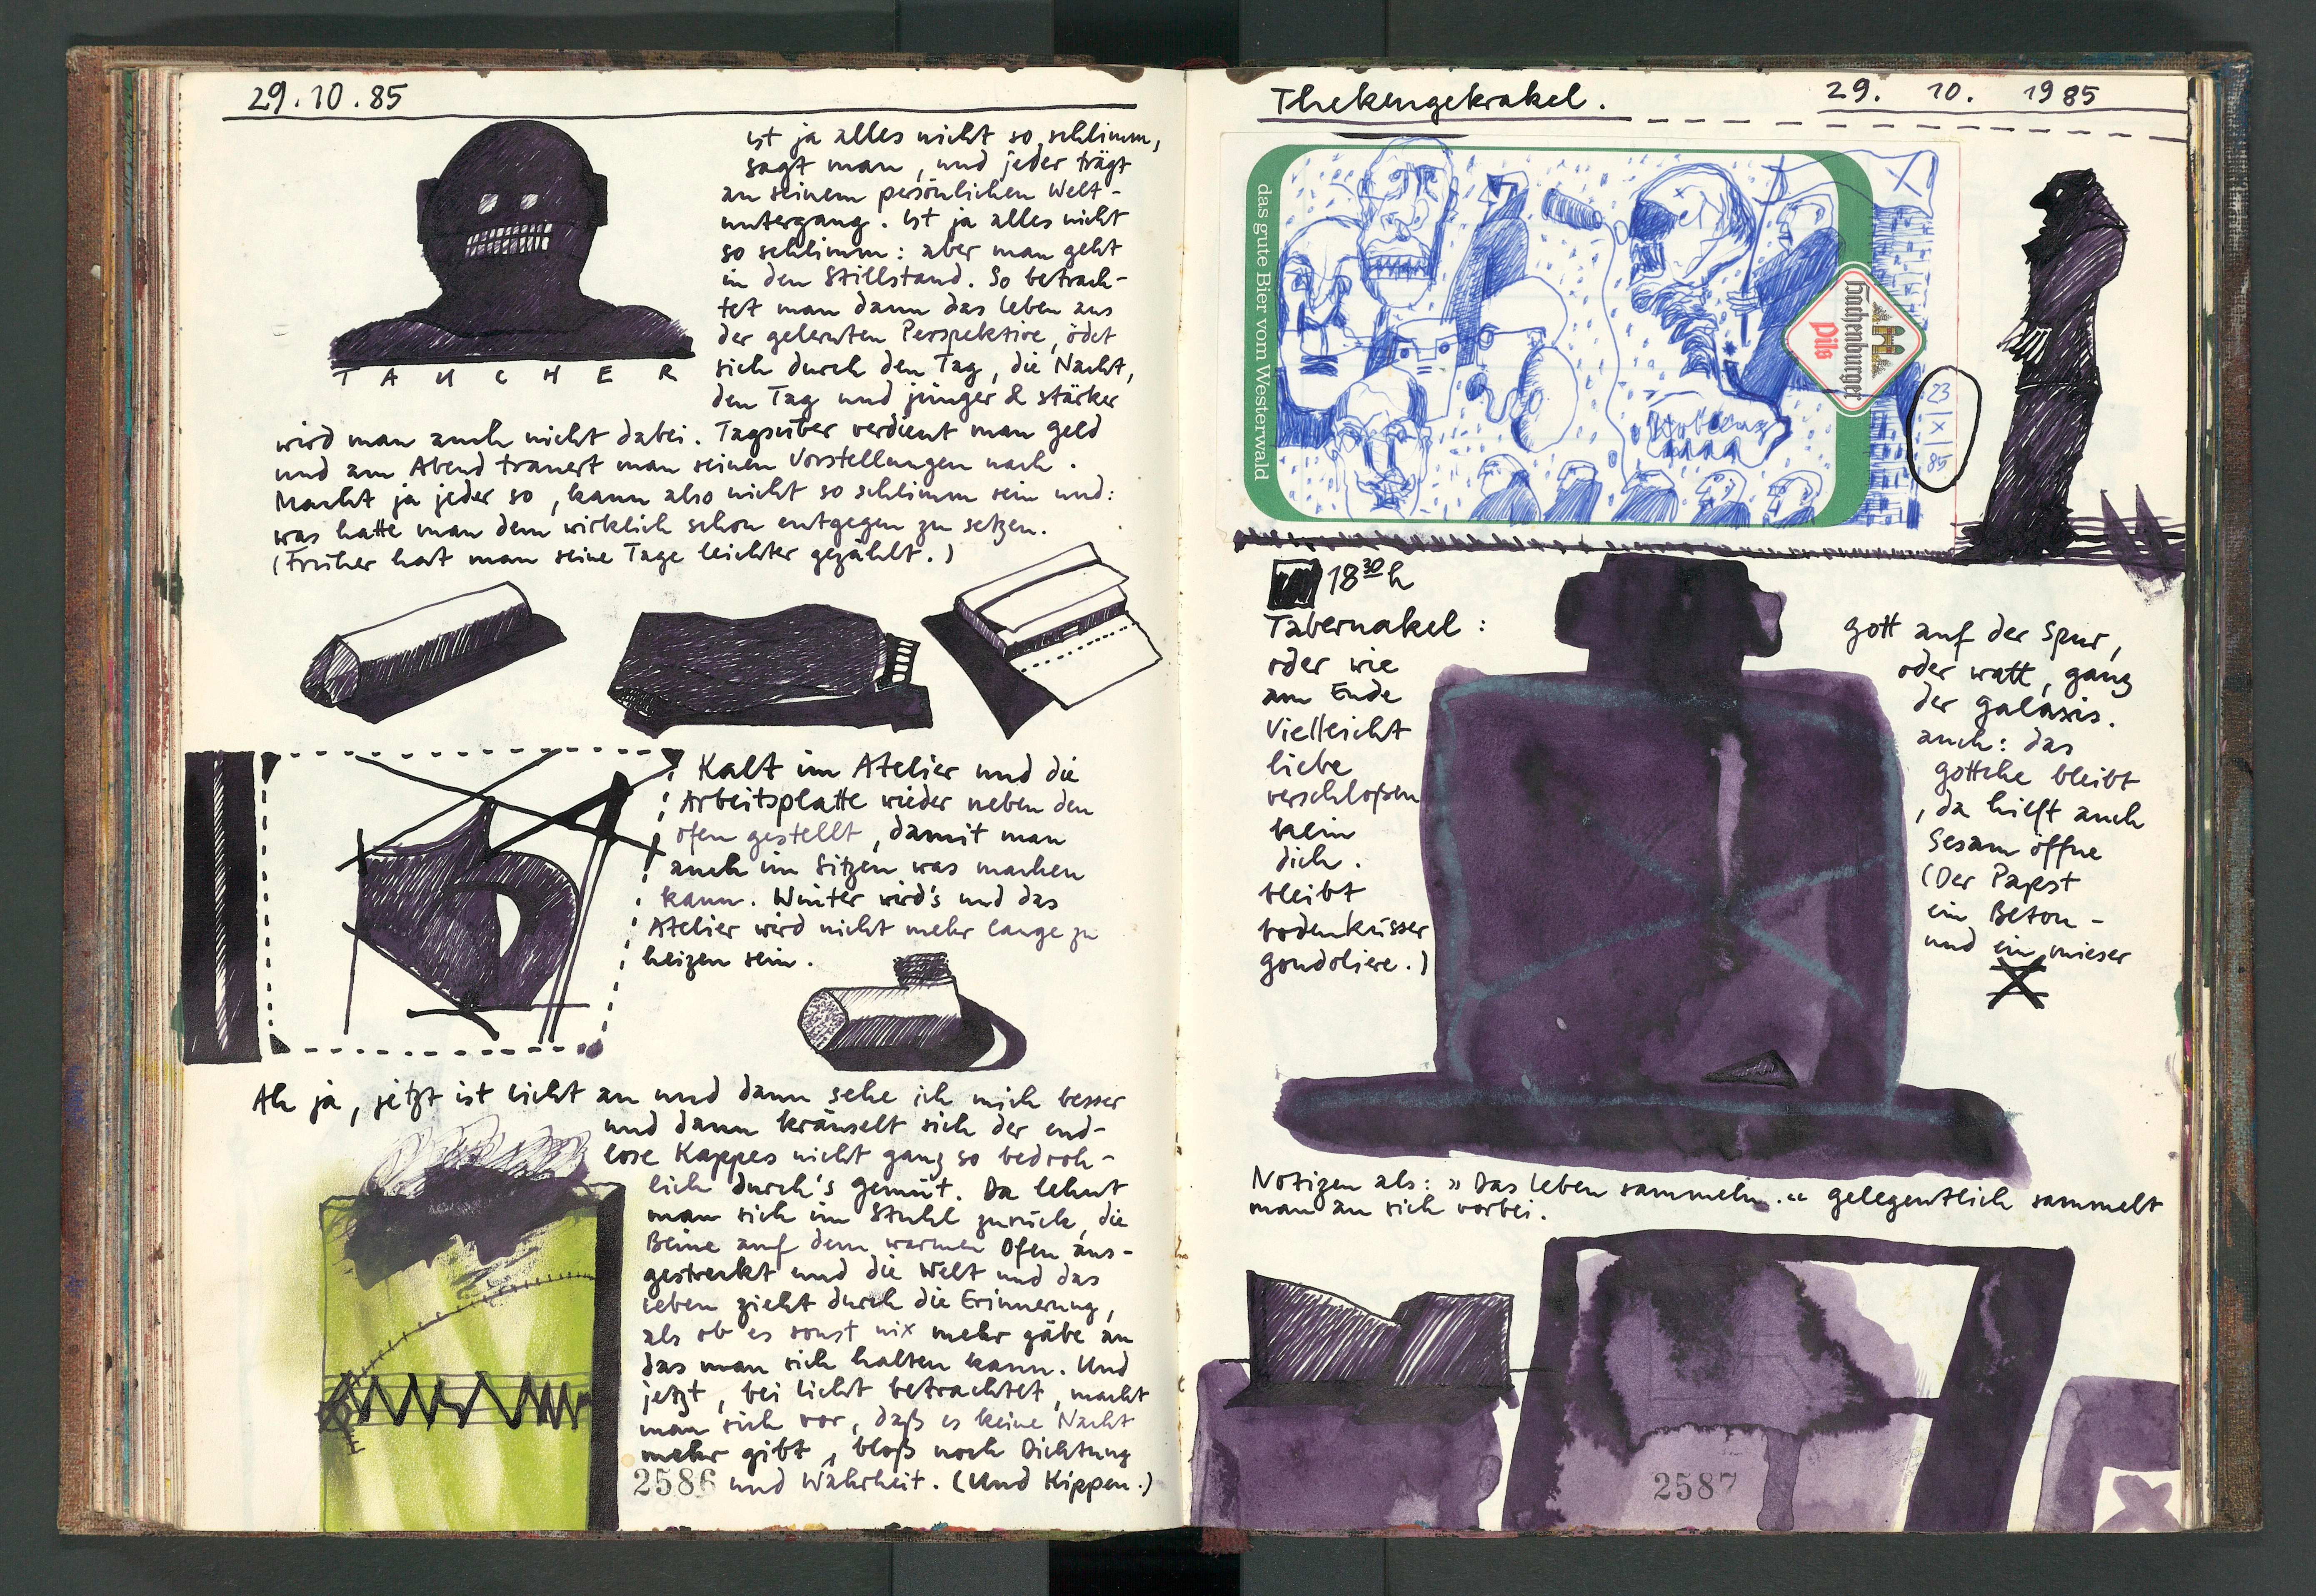 29.10.85
ist ja alles nicht so schlimm,
sagt man, und jeder trägt
an seinem persönlichen Welt-
untergang. Ist ja alles nicht
so schlimm: aber man geht
in den Stillstand. So betrach-
tet man dann das Leben aus
der gelernten Perspektive, ödet
sich durch den Tag, die Nacht,
den Tag und jünger & stärker
TAUCHER
wird man auch nicht dabei. Tagsüber verdient man Geld
und am Abend trauert man seinen Vorstellungen nach.
Macht ja jeder so, kann also nicht so schlimm sein und:
was hätte man dem wirklich schon entgegen zu setzen.
(Früher hat man seine Tage leichter gezählt.)
Kalt im Atelier und die
Arbeitsplatte wieder neben den
Ofen gestellt, damit man
auch im Sitzen was machen
kann. Winter wird's und das
Atelier wird nicht mehr lange zu
heizen sein.
Ah ja, jetzt ist Licht an und dann sehe ich mich besser
und dann kräuselt sich der end-
lose Kappes nicht ganz so bedroh-
lich durch's Gemüt. Da lehnt
man sich im Stuhl zurück, die
Beine auf dem warmen Ofen aus-
gestreckt und die Welt und das
Leben zieht durch die Erinnerung,
als ob es sonst nix mehr gäbe an
das man sich halten kann. Und
jetzt, bei Licht betrachtet, macht
man sich vor, daß es keine Nacht
mehr gibt, bloß noch Dichtung
und Wahrheit. (Und Kippen.)
2586
Thekengekrakel. 29. 10. 1985
das gute Bier vom Westerwald
Hachenburger
Pils
23
X
85
18 30 h
Tabernakel:
oder wie
am Ende
Vielleicht
liebe
verschloßen
kein
dich.
bleibt
bodenküsser
gondoliere.)
gott auf der Spur,
oder watt, ganz
der galaxis.
auch: das
göttche bleibt
, da hilft auch
Sesam öffne
(Der Papst
ein Beton-
und ein mieser
Notizen als: »Das Leben sammeln.« gelegentlich sammelt
man an sich vorbei.
2587